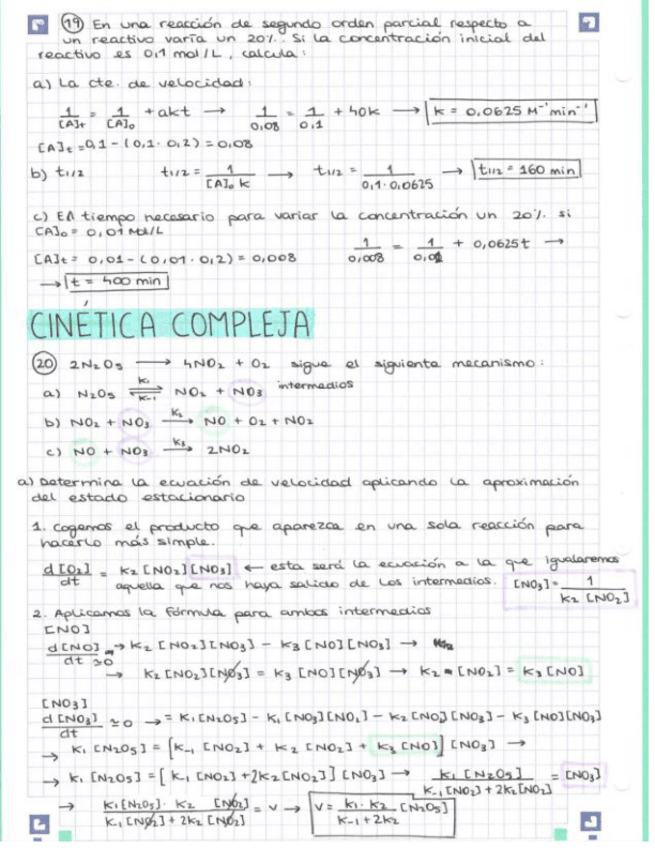 19 En una reacción de segundo orden parcial respecto a
un reactivo varía un 20%. Si la concentración inicial del
reactivo es 0,1 mol/L, calcula:
a) La cte. de velocidad:
1/[A]t = 1/[A]0 + akt → 1/0,08 = 1/0,1 + 40k → k = 0,0625 M⁻¹min⁻¹
[A]t = 0,1 - (0,1 · 0,2) = 0,08
b) t1/2 t1/2 = 1/[A]0 k → t1/2 = 1/0,1·0,0625 → t1/2 = 160 min
c) El tiempo necesario para variar la concentración un 20% si
[A]0 = 0,01 mol/L
[A]t = 0,01 - (0,01 · 0,2) = 0,008 1/0,008 = 1/0,01 + 0,0625t →
→ t = 400 min
CINÉTICA COMPLEJA
20 2N2O5 → 4NO2 + O2 sigue el siguiente mecanismo:
a) N2O5 ⇌ NO2 + NO3 intermedios
K1
K-1
b) NO2 + NO3 →K2 NO + O2 + NO2
c) NO + NO3 →K3 2NO2
a) Determina la ecuación de velocidad aplicando la aproximación
del estado estacionario
1. Cogemos el producto que aparezca en una sola reacción para
hacerlo más simple.
d[O2]/dt = K2 [NO2][NO3] ← esta será la ecuación a la que igualaremos
aquella que nos haya salido de los intermedios. [NO3] = 1/K2 [NO2]
2. Aplicamos la fórmula para ambos intermedios
[NO]
d[NO]/dt ≃0 → K2 [NO2][NO3] - K3 [NO][NO3] →
→ K2 [NO2][NO3] = K3 [NO][NO3] → K2 [NO2] = K3 [NO]
[NO3]
d[NO3]/dt ≃0 → = K1[N2O5] - K1[NO3][NO2] - K2[NO2][NO3] - K3[NO][NO3]
→ K1 [N2O5] = [K-1 [NO2] + K2 [NO2] + K3 [NO]] [NO3] →
→ K1 [N2O5] = [K-1 [NO2] + 2K2[NO2]] [NO3] → K1 [N2O5]/K-1[NO2] + 2K2[NO2] = [NO3]
→ K1[N2O5] · K2 [NO2]/K-1[NO2] + 2K2[NO2] = V → V = K1 · K2/K-1 + 2K2 [N2O5]